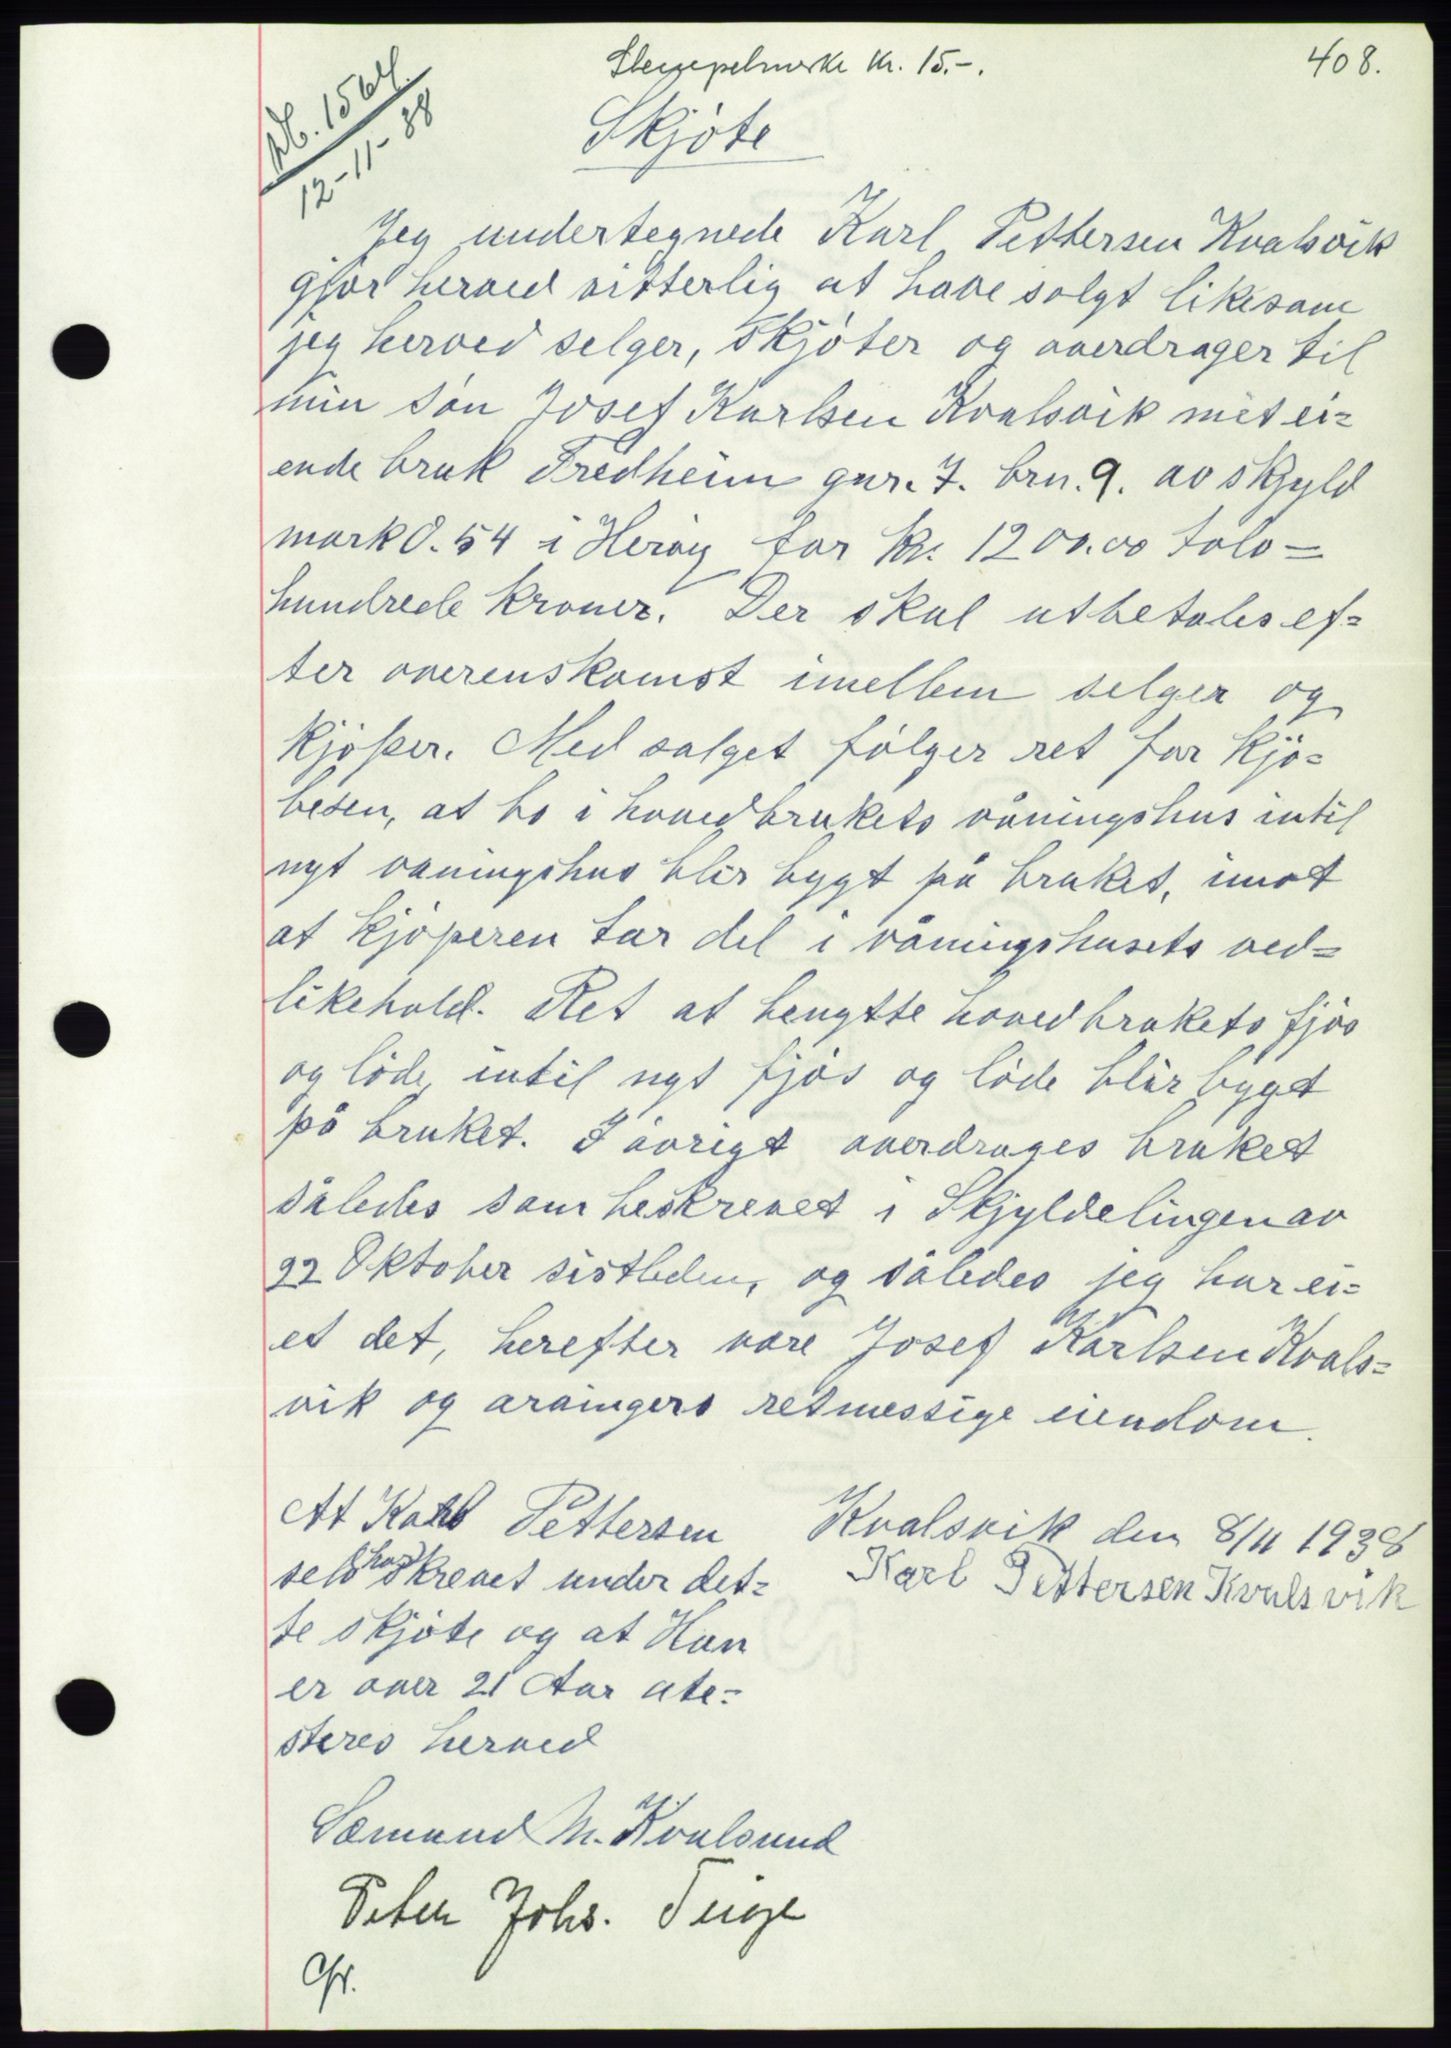 Stempelmerke kr. 15.-.
408.
Db. 1564.
12-11-38
Skjøte
Jeg undertegnede Karl Pettersen Kvalsvik
gjør herved vitterlig at have solgt likesom
jeg herved selger, skjøter og overdrager til
min søn Josef Karlsen Kvalsvik mit ei=
ende bruk Fredheim gnr. 7. brn. 9. av skyld
mark 0.54 i Herøy for kr. 1200.00 tolv=
hundrede kroner. Der skal utbetales ef=
ter overenskomst imellem selger og
kjøper. Med salget følger ret for kjø=
besen, at bo i hovedbrukets våningshus intil
nyt vaningshus blir bygt på bruket, imot
at kjøperen tar del i våningshusets ved=
likehold. Ret at benytte hovedbrukets fjøs
og løde, intil nyt fjøs og løde blir bygget
på bruket. I øvrigt overdrages bruket
således som beskrevet i Skjyldelingen av
22 Oktober sistleden, og således jeg har ei=
et det, herefter være Josef Karlsen Kvals=
vik og arvingers retmessige eiendom.
At Karl Pettersen
selv har skrevet under det=
te skjøte og at Han
er over 21 Aar ate=
steres herved
Kvalsvik den 8/11 1938
Karl Pettersen Kvalsvik
Sæmund M. Kvalsund
Peter Johs. Teige